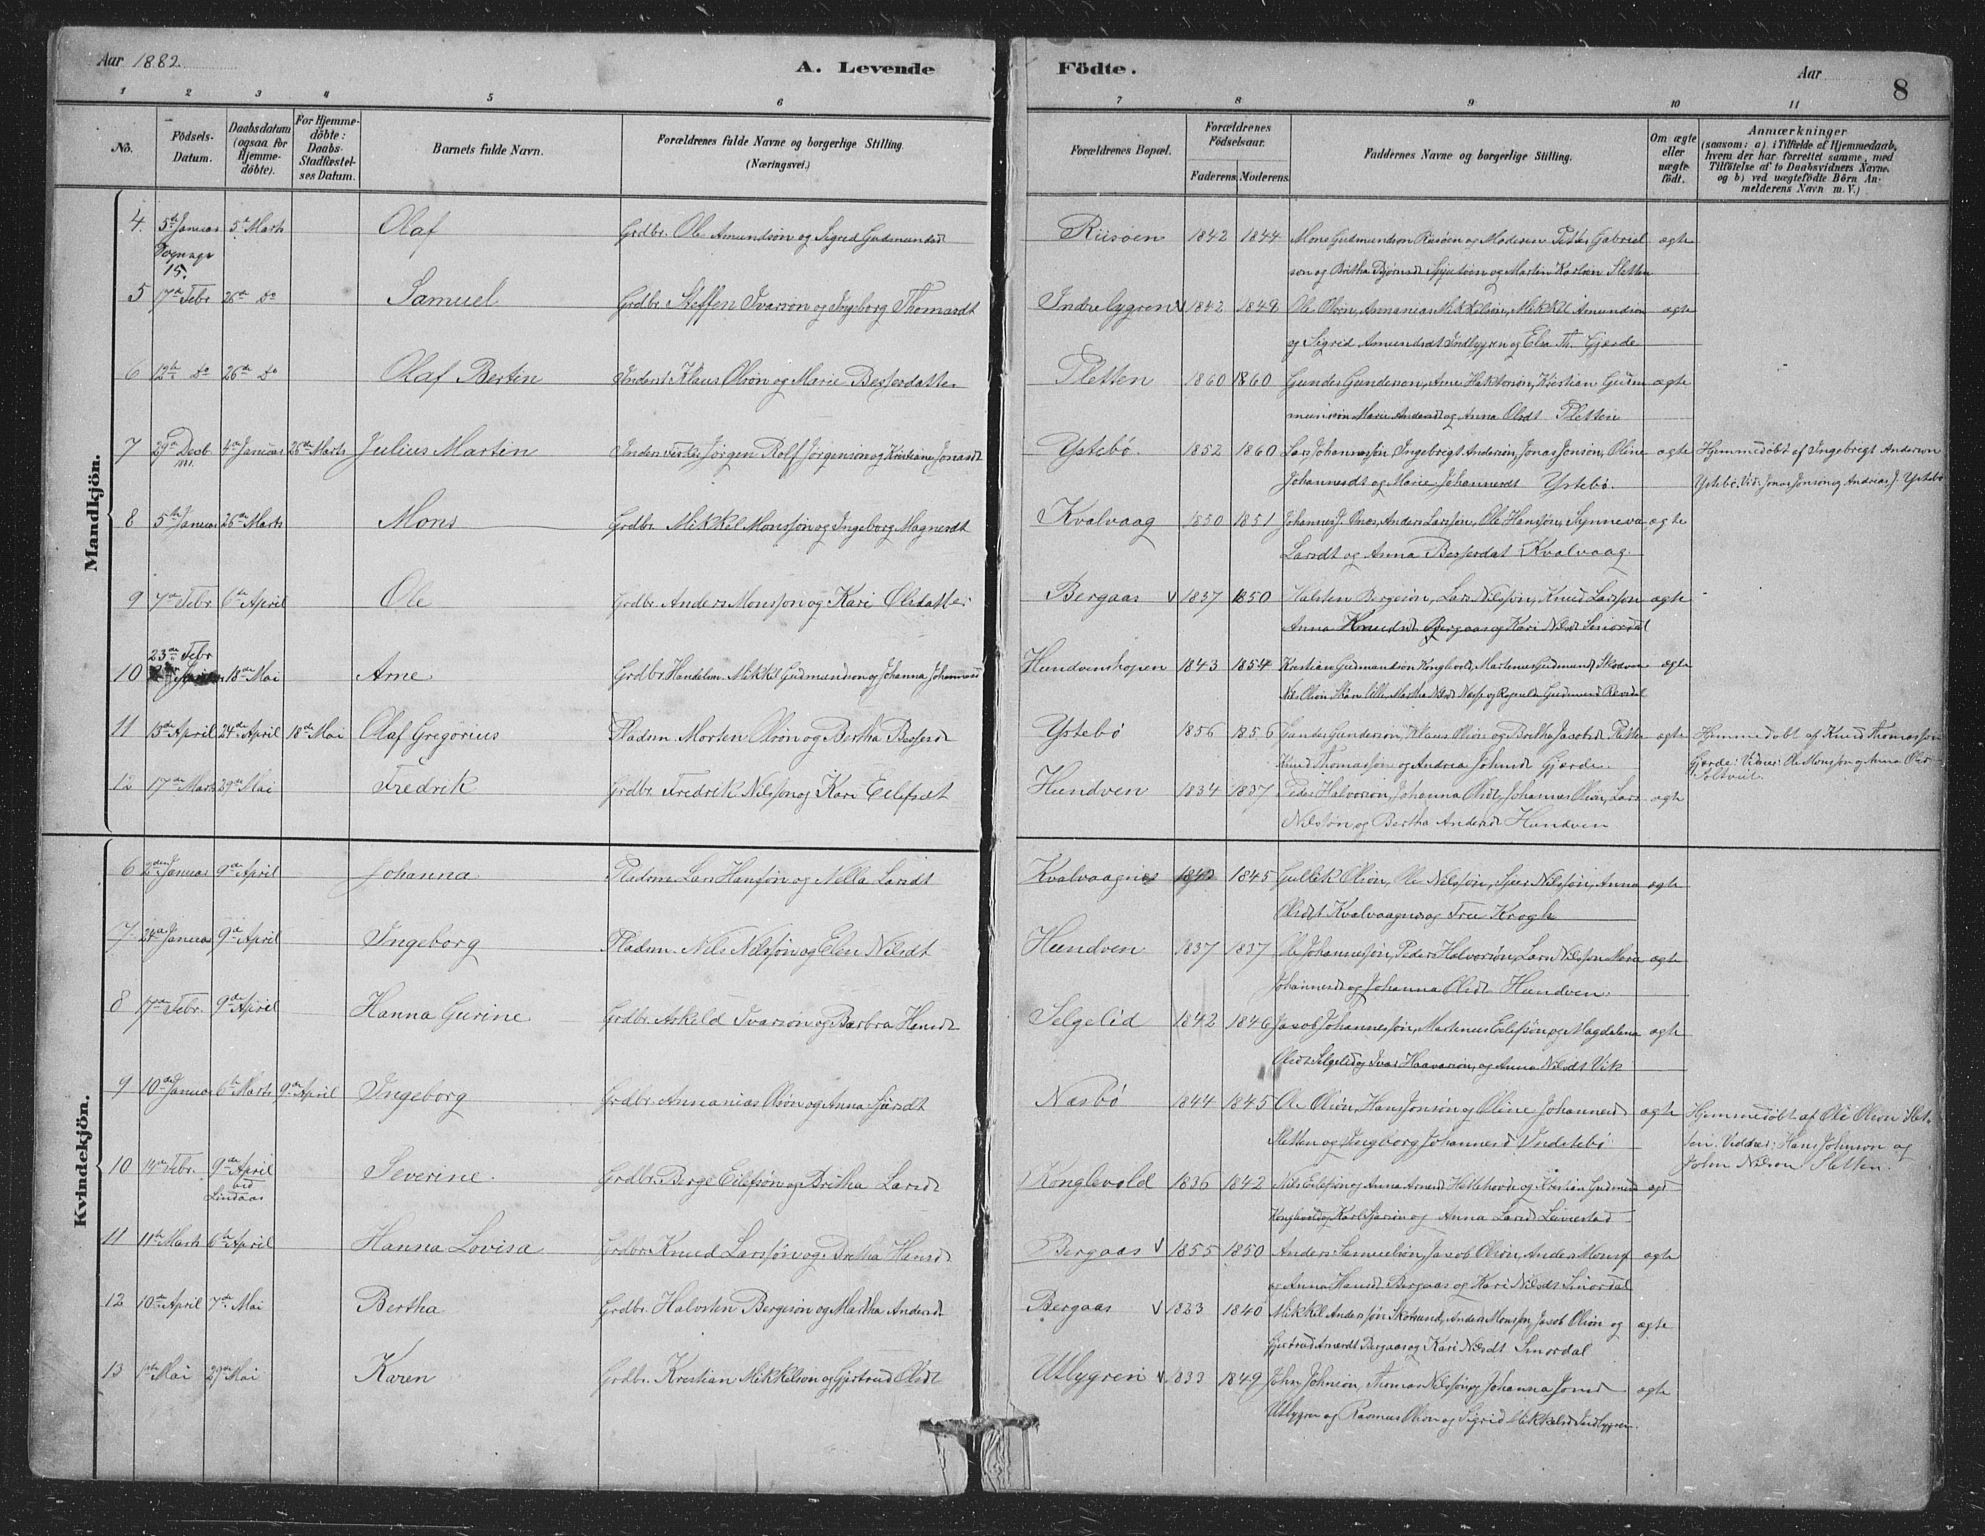 Aar 1882.
A. Levende Födte.
Aar
8
1 2 3 4 5 6 7 8 9 10 11
No.
Födsels-Datum.
Daabsdatum (ogsaa for Hjemme-döbte).
For Hjemme-döbte: Daabs-Stadfæstel-ses Datum.
Barnets fulde Navn.
Forældrenes fulde Navne og borgerlige Stilling. (Næringsvei.)
Forældrenes Bopæl.
Forældrenes Födselsaar.
Faderens. Moderens.
Faddernes Navne og borgerlige Stilling.
Om ægte eller uægte födt.
Anmærkninger
(saasom: a) i Tilfælde af Hjemmedaab, hvem der har forrettet samme, med Tilföielse af to Daabsvidners Navne. og b) ved uægtefödte Börn An-melderens Navn m. V.)
Mandkjön.
4. 5te Januar 5te Marts Olaf Grdbr. Ole Amundsön og Sigrid Gudmundsdt Riisöen 1842 1844 Mons Gudmundsön Riisöen og Moderen Petter Gabriel ægte
15. son og Britha og Marten Karlsön Sletten
5 17de Febr 26de Do Samuel Grdbr. Steffen Ivarsön og Ingeborg Thomasdt Indrelygren 1842 1849 Ole Olsön, Annanias Mikkelsön, Mikkel Amundsön ægte
og Sigrid Amundsdt Indlygren og Elsa Th. Gjerde
6 12te Do 26de Do Olaf Bertin Inderst Klaus Olsön og Marie Besserdatter Sletten 1860 1860 Gunder Gunderson, Arne Kristian Gudm ægte
Marie Andersdt og Anna Olsdt Sletten
7 29de Decb 1881. 4de Januar 26de Marts Julius Martin Jörgen Rolf Jörgenson og Kristiane Jonasdt Ystebö. 1852 1860 Lars Johannessön Ingebrigt Andersön, Jonas Jonsön, Oline ægte Hjemmedöbt af Ingebrigt Anderson
Johannesdt og Marie Johannesdt Ystebö. Ystebö. Vid: Jonas Jonsön og Andreas J. Ystebö
8 5te Januar 26de Marts Mons Grdbr. Mikkel Monssön og Ingeborg Magnesdt Kvalvaag 1850 1851 Johannes J. Anders Larssön, Ole Hanssön, Synneva ægte
Larsdt og Anna Bessesdat Kvalvaag.
9 7de Febr 6te April Ole Grdbr. Anders Monssön og Kari Olsdatter Bergaas 1837 1850 Halsten Bergesön, Lars Nilssön, Knud Larssön ægte
Anna Knudsdt Bergaas og Kari Nilsdt Smordal
23de Febr
10 18de Mai Arne Grdbr. Handelsm. Mikkel Gudmundson og Johanna Johannesdt Hundvenshopen 1843 1854 Kristian Gudmundsön Konglevold, Martenus Gudmunds ægte
Nils Olsön Martha Nilsdt Næse og Gudmunds
11 13de April 24de April 18de Mai Olaf Gregorius Pladsm. Morten Olsön og Bertha Bessesd Ystebö 1856 1856 Gunder Gundersön, Klaus Olsön og Britha Jacobsdt ægte Hjemmedöbt af Knud Thomassön
Knud Thomassön og Andrea Johnsdt Gjerde. Gjerde. Vidner: Ole Monssön og Anna Olsdt
12 17de Marts 29de Mai Fredrik Grdbr. Fredrik Nilssön og Kari Eilifsdt Hundven 1834 1837 Peder Halvorsön, Johanna Olsdt, Johannes Olsön, Lars ægte
Nilssön og Bertha Andersdt Hundven
Kvindekjön.
6 2den Januar 9de April Johanna Pladsm. Lars Hanssön og Nilla Larsdt Kvalvaagnes 1845 Gullik Olsön, Ole Nilssön, Sjur Nilssön, Anna ægte
Olsdt Kvalvaagnes og Fru Krogh
7 24de Januar 9de April Ingeborg Pladsm. Nils Nilssön og Elen Nilsdt Hundven 1837 1837 Ole Johannessön, Peder Halvorsön, Lars Nilssön Marie ægte
Johannesdt og Johanna Olsdt Hundven.
8 17de Febr. 9de April Hanna Gurine Grdbr. Askeld Ivarsön og Barbra Hansdt Selgelid 1842 1846 Jacob Johannessön, Martenus Eilifsön og Magdalena ægte
Olsdt Selgelid og Ivar Haavarsön, og Anna Nilsdt Vik
9 10de Januar 6te Marts 9de April Ingeborg Grdbr. Annanias Olsön og Anna Sjursdt Næsbö 1844 1845 Ole Olsön, Hans Jonsön og Oline Johannesd ægte Hjemmedöbt af Ole Olson Slet-
Sletten og Ingborg Johannesd Undetebö. ten. Vidner: Hans Johnson og
John Nilson Sletten.
10 14de Febr. 9de April ved Lindaas Severine Grdbr. Berge Eilifsön og Britha Larsdt Konglevold 1836 1842 Nils Eilifsön og Anna Arnesd og Kristian Gudmund ægt
Konglevold og Karl Sjursön og Anna Larsd
11 11te Marts 6te April Hanna Lovisa Grdbr. Knud Larssön og Britha Hansdt Bergaas 1855 1850 Anders Samuelsön, Jacob Olsön, Anders Monss ægte
og Anna Hansdt Bergaas og Kari Nilsdt Smordal
12 10de April 7de Mai Bertha Grdbr. Halvsten Bergesön og Martha Andersdt Bergaas 1823 1840 Mikkel Anderssön Anders Monssön, Jacob Olsön og ægte
Gjertrud Bergaas og Kari Nilsdt Smordal
13 1ste Mai 29de Mai Karen Grdbr. Kristian Mikkelson og Gjertrud Olsdt Utlygren 1833 1849 John Johnsön, Thomas Nilssön og Johanna Jonsd ægte
Utlygren og Rasmus Olson og Sigrid Mikkelsd Indlygren.